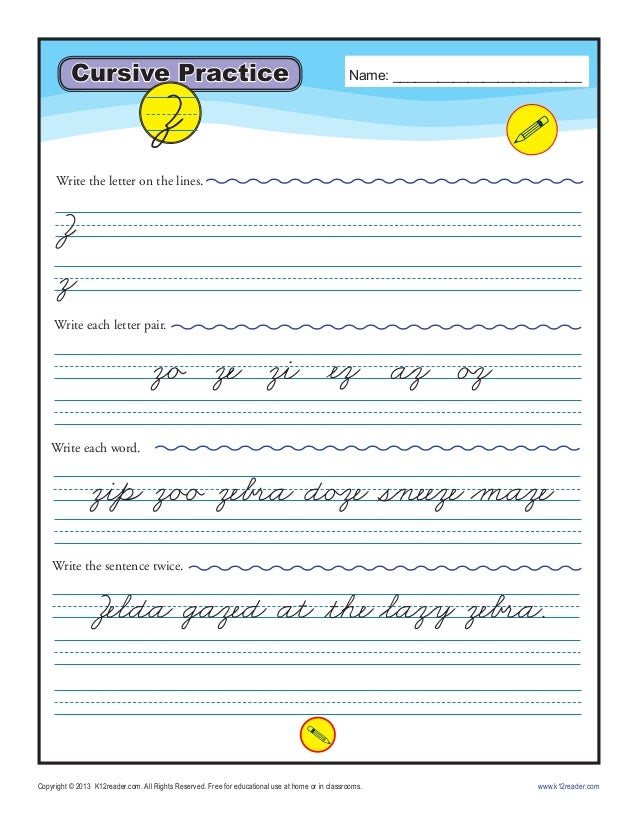 Cursive Practice
Name: ________________________
Z
Write the letter on the lines.
Z
z
Write each letter pair.
zo ze zi ez az oz
Write each word.
zip zoo zebra doze sneeze maze
Write the sentence twice.
Zelda gazed at the lazy zebra.
Copyright © 2013 K12reader.com. All Rights Reserved. Free for educational use at home or in classrooms. www.k12reader.com